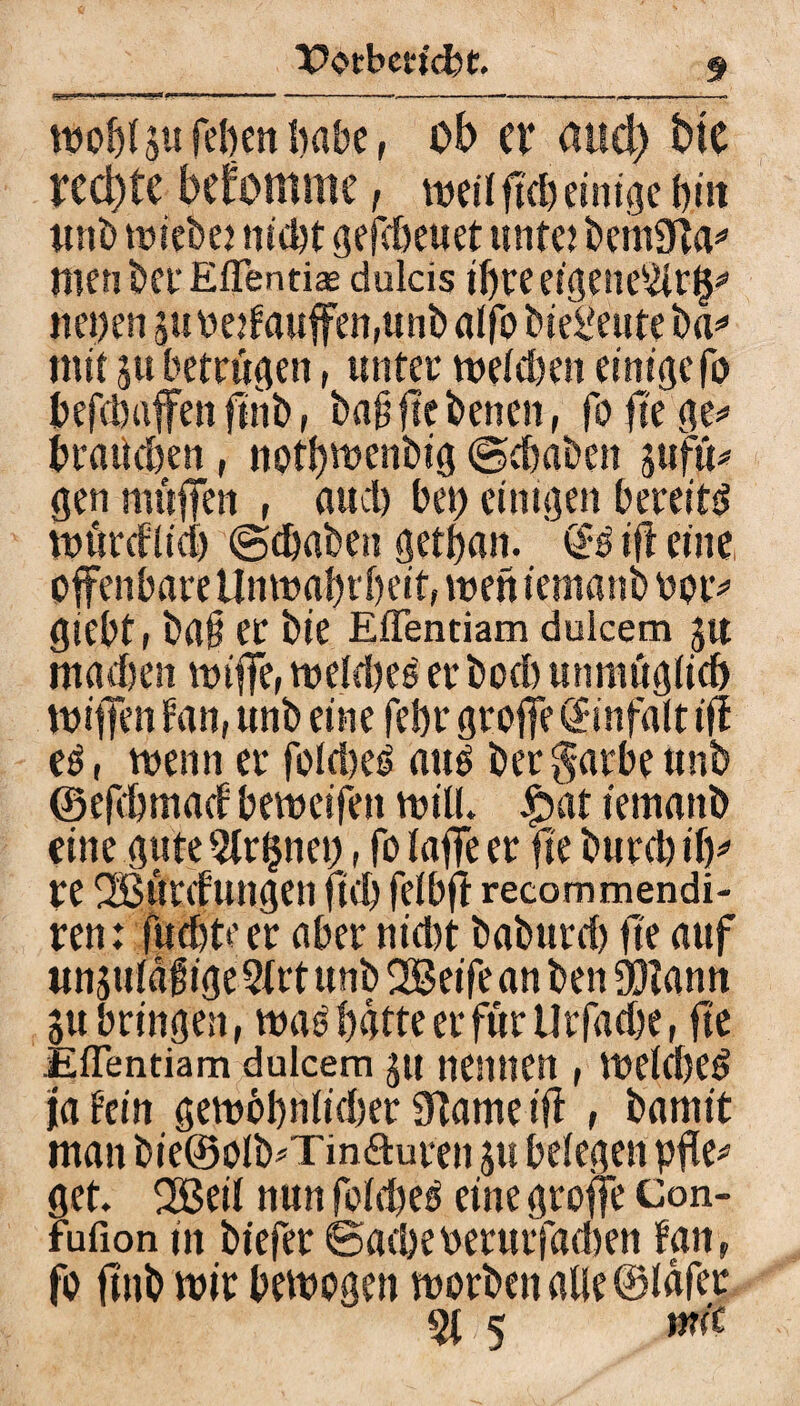 Vorbericht. 9
wohl zu sehen habe, ob er auch die
rechte bekomme, weil sich einige hin
und wieder nicht gescheuet unter dem Na-
men der Essentiæ dulcis ihre eigene Artz-
neyen zu verkauffen, und also die Leute da-
mit zu betrügen, unter welchen einige so
beschaffen sind, daß sie denen, so sie ge-
brauchen, nothwendig Schaden zufü-
gen müssen, auch bey einigen bereits
würcklich Schaden gethan. Es ist eine
offenbare Unwahrheit, weñ iemand vor-
giebt, daß er die Essentiam dulcem zu
machen wisse, welches er doch unmüglich
wissen kan, und eine sehr grosse Einfalt ist
es, wenn er solches aus der Farbe und
Geschmack beweisen will. Hat iemand
eine gute Artzney, so lasse er sie durch ih-
re Würckungen sich selbst recommendi-
ren: suchte er aber nicht dadurch sie auf
unzuläßige Art und Weise an den Mann
zu bringen, was hätte er für Ursache, sie
Essentiam dulcem zu nennen, welches
ja kein gewöhnlicher Name ist, damit
man die Gold-Tincturen zu belegen pfle-
get. Weil nun solches eine grosse Con-
fusion in dieser Sache verursachen kan,
so sind wir bewogen worden alle Gläser
A 5 mit